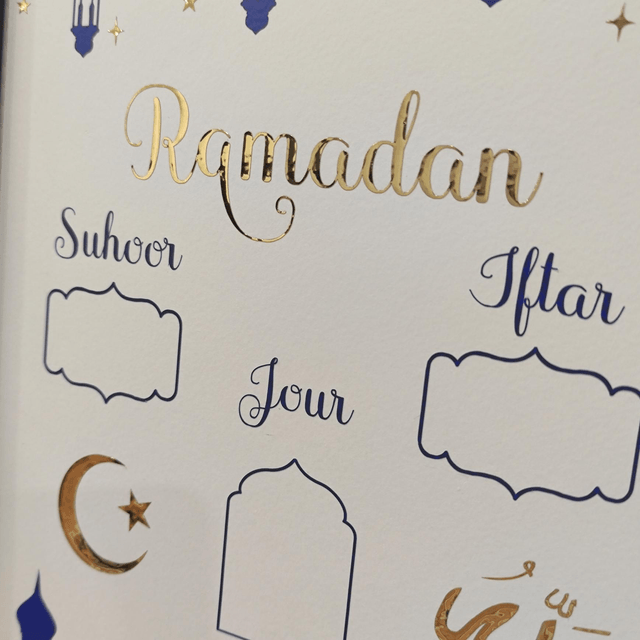 Ramadan
Suhoor
Iftar
Jour